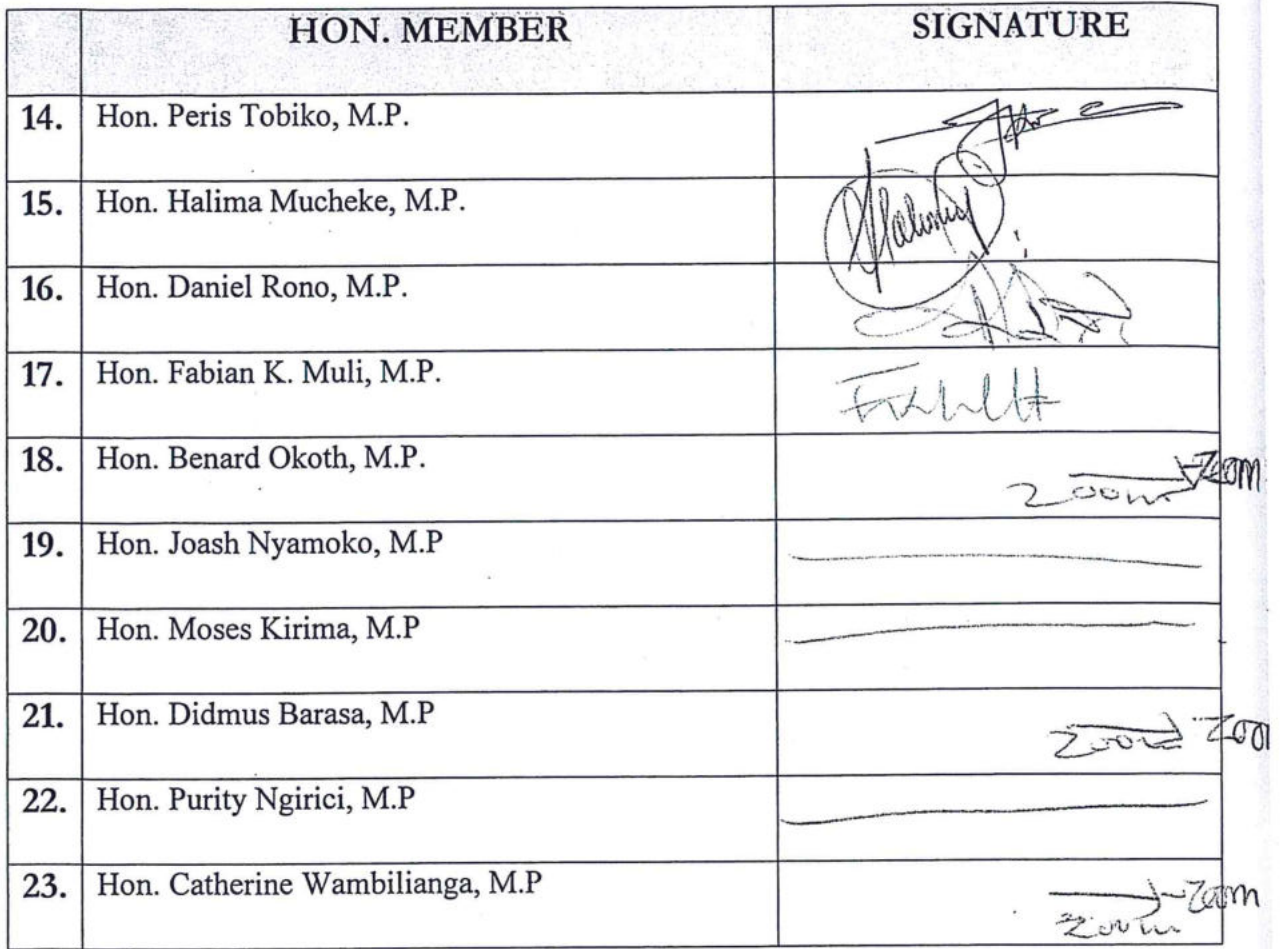 HON. MEMBER SIGNATURE
14. Hon. Peris Tobiko, M.P.
15. Hon. Halima Mucheke, M.P.
16. Hon. Daniel Rono, M.P.
17. Hon. Fabian K. Muli, M.P.
18. Hon. Benard Okoth, M.P. Zoom Zoom
19. Hon. Joash Nyamoko, M.P
20. Hon. Moses Kirima, M.P
21. Hon. Didmus Barasa, M.P Zoom
22. Hon. Purity Ngirici, M.P
23. Hon. Catherine Wambilianga, M.P Zoom
Zoom